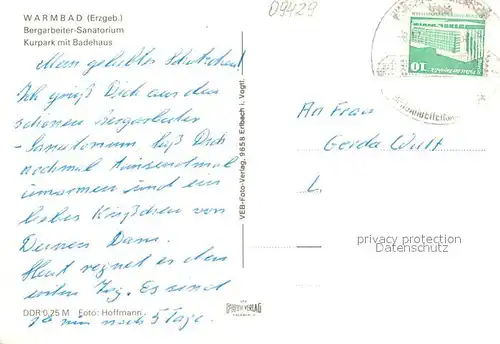 09429
WARMBAD (Erzgeb.)
Bergarbeiter-Sanatorium
Kurpark mit Badehaus
10
Mein geliebter Schatz
Ich grüß Dich aus dem
schönen Bergarbeiter
-Sanatorium laß Dich
nochmal tausendmal
umarmen und ein
liebes Küßchen von
Deinem
Heut regnet es den
ersten Tag. Es sind
nur noch 5 Tage.
VEB-Foto-Verlag, 9658 Erlbach i. Vogtl.
An Frau
Gerda Wulf
L
privacy protection
DATENSCHUTZ
DDR 0,25 M Foto: Hoffmann